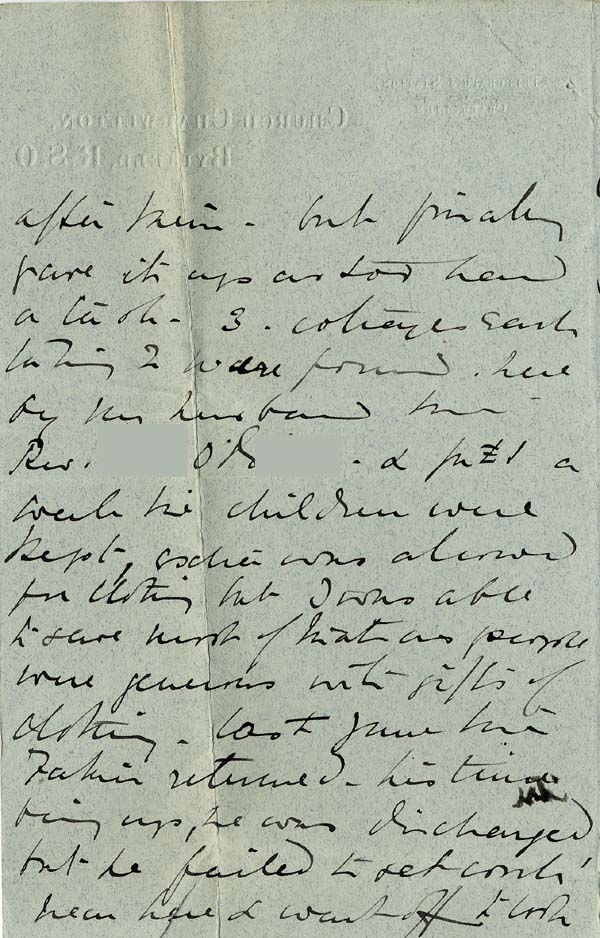 TELEGRAPH STATION,
CHURCH CHARWELTON,
BYFIELD, R.S.O.
after them - but finally
gave it up as too hard
a task - 3 - cottages each
taking 2 were found here
by my husband the
Rev. O' - & for £1 a
week the children were
kept, extra was allowed
for clothing but I was able
to save most of that as people
were generous with gifts of
clothing - last June the
Father returned - his time
being up, he was discharged
but he failed to get work
near here & went off to look